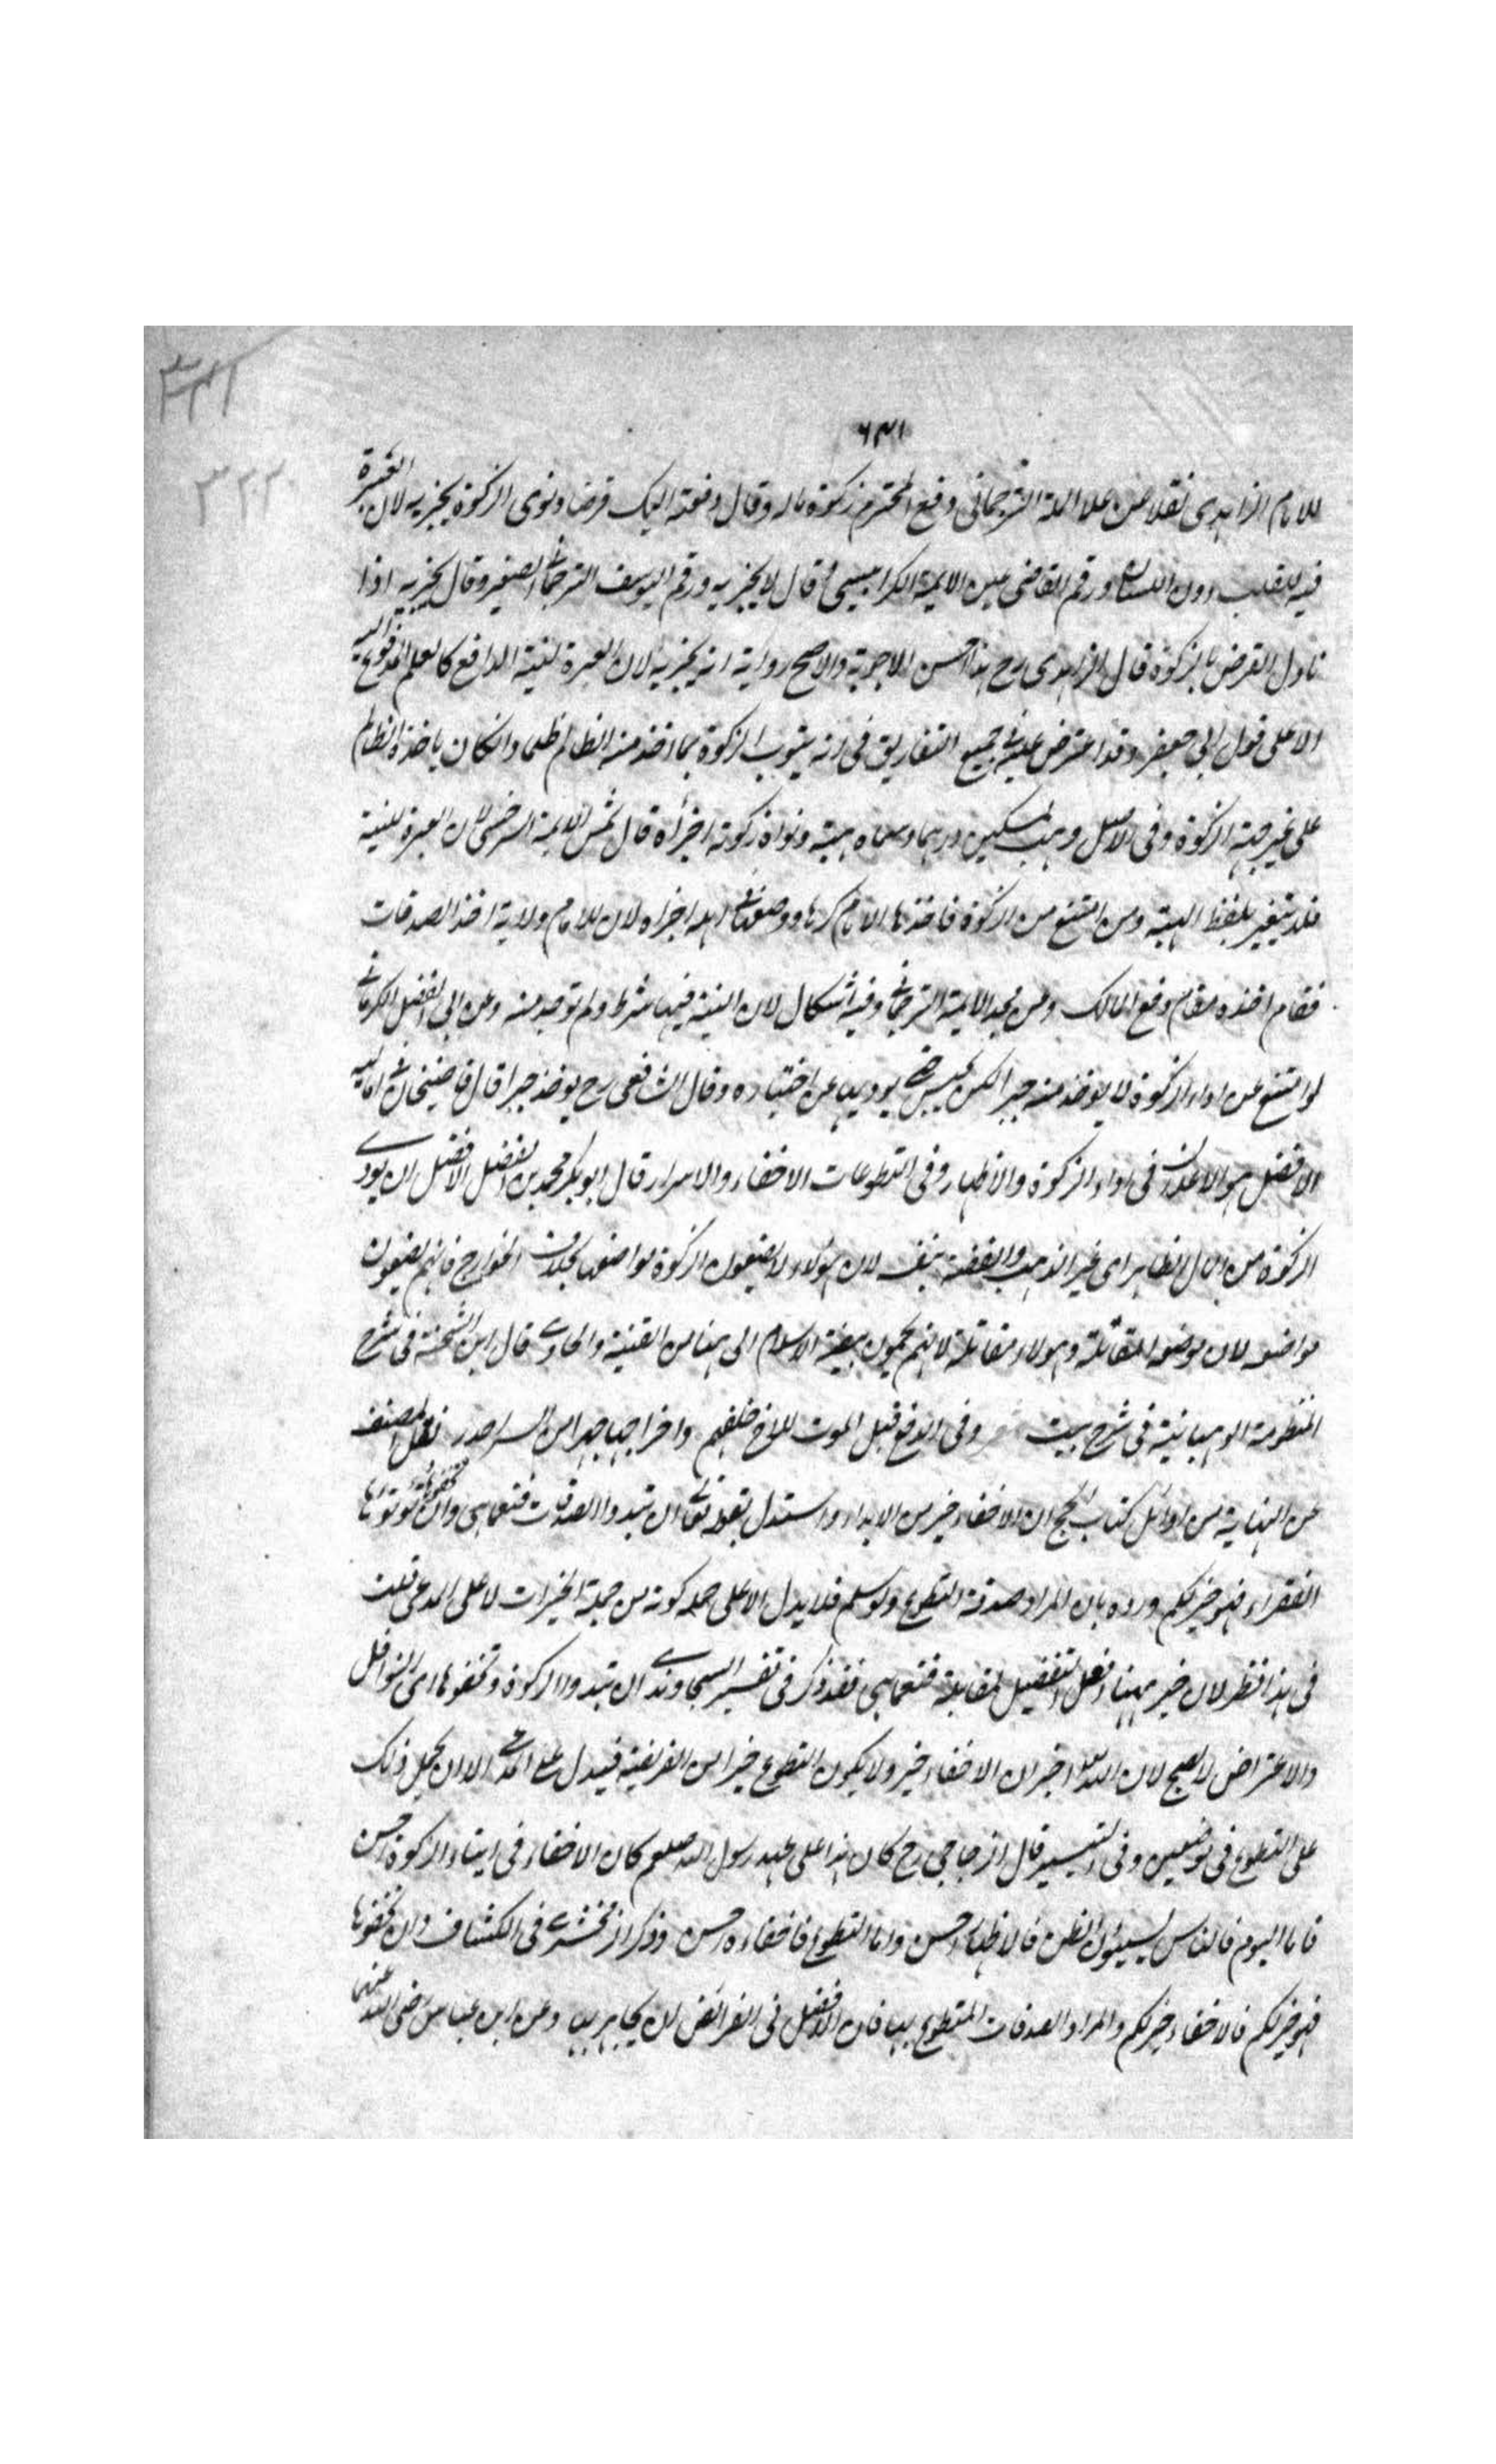 ٣٢١
٣٢٢
٦٣١
للامام الزاهدى نقلا عن علا الائمة الترجمانى دفع لمحترم زكوة ماله وقال دفعته اليك قرضا ونوى الزكوة يجزيه لان العبرة
فيه للقلب دون اللسان ورقم القاضى عين الايمة الكرابيسى قال لا يجزيه ورقم ليوسف الترجمانى الصغير وقال يجزيه اذا
تاول القرض بالزكوة قال الزاهدى رح هذا احسن الاجوبة والاصح رواية انه يجزيه لان العبرة لنية الدافع لا لعلم المدفوع اليه
الا على قول ابى جعفر وقد اعترض عليه جميع التفاريق فى انه ينوب الزكوة بما اخذ منه الظالم ظلما وان كان ياخذه الظالم
على غير جهة الزكوة وفى الاصل وهب لمسكين درهما وسماه هبة ونواه زكوته اجزأه قال شمس الايمة السرخسى لان العبرة للنية
فلا يتغير بلفظ الهبة ومن امتنع من الزكوة فاخذها الامام كرها ووضعها فى اهله اجزاه لان للامام ولاية اخذ الصدقات
فقام اخذه مقام دفع المالك وعن مجد الايمة الترجمانى وفيه اشكال لان النية فيها شرط ولم توجد منه وعن ابى الفضل الكرمانى
لو امتنع عن اداء الزكوة لا يوخذ منه جبرا لكن يحبس حتى يوديها عن اختياره وقال الشافعى رح يوخذ جبرا قال قاضيخان فى اماليه
الافضل هو الاعلان فى اداء الزكوة والاظهار وفى التطوعات الاخفاء والاسرار قال ابو بكر محمد بن الفضل الافضل ان يودى
الزكوة من المال الظاهر اى غير الذهب والفضة بنفسه لان هولاء لا يضعون الزكوة مواضعها بخلاف الخوارج فانهم يضعون
مواضعه لان موضعه المقاتلة وهولاء مقاتلة لانهم يحمون بيضة الاسلام الى هنا من القنية والحاوى قال ابن الشحنة فى شرح
المنظومة الوهبانية فى شرح بيت وفى الدفع قبل الموت للاخ خلفهم واخراجها جهرا من السر اجدر نقل المصنف
عن النهاية من اوائل كتاب الحج ان الاخفاء خير من الابداء واستدل بقوله تعالى ان تبدوا الصدقات فنعما هى وان تخفوها وتوتوها
الفقراء فهو خير لكم ورده بان المراد صدقة التطوع ولو سلم فلا يدل الا على كونه من جملة الخيرات لا على المدعى قلت
فى هذا نظر لان خير ههنا افعل التفضيل لمقابلة فنعما هى فقد ذكر فى تفسير السجاوندى ان تبدوا الزكوة وتخفوها اى النوافل
والاعتراض لا يصح لان الله تعالى اخبر ان الاخفاء خير ولا يكون التطوع خيرا من الفريضة فيدل على المدعى الا ان يحمل ذلك
على التطوع فى نوعين وفى التيسير قال الزجاجى رح كان هذا على عهد رسول الله صلعم كان الاخفاء فى ايتاء الزكوة احسن
فاما اليوم فالناس يسيئون الظن فالاظهار احسن واما التطوع فاخفاءه احسن وذكر الزمخشرى فى الكشاف وان تخفوها
فهو خير لكم فالاخفاء خير لكم والمراد الصدقات المتطوع بها فان الافضل فى الفرائض ان يجاهر بها وعن ابن عباس رضى الله عنهما